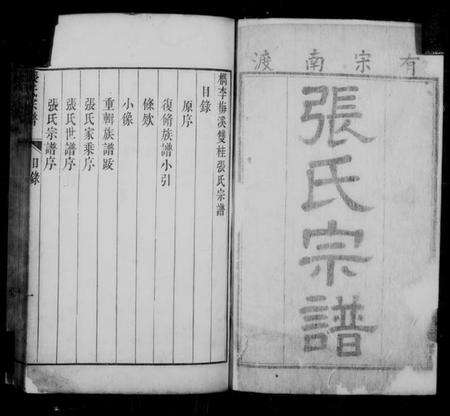 有宗南渡
張氏宗譜
檇李梅溪雙桂張氏宗譜
目錄
原序
復脩族譜小引
條欵
小像
重輯族譜跋
張氏家乘序
張氏世譜序
張氏宗譜序
目錄